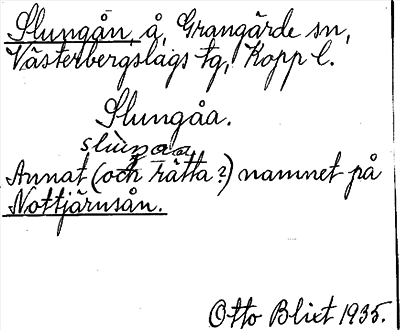 Slungån, å, Grangärde sn,
Västerbergslags tg, Kopp l.
Slungåa.
slùngåa
Annat (och rätta?) namnet på
Nottjärnsån.
Otto Blixt 1935.